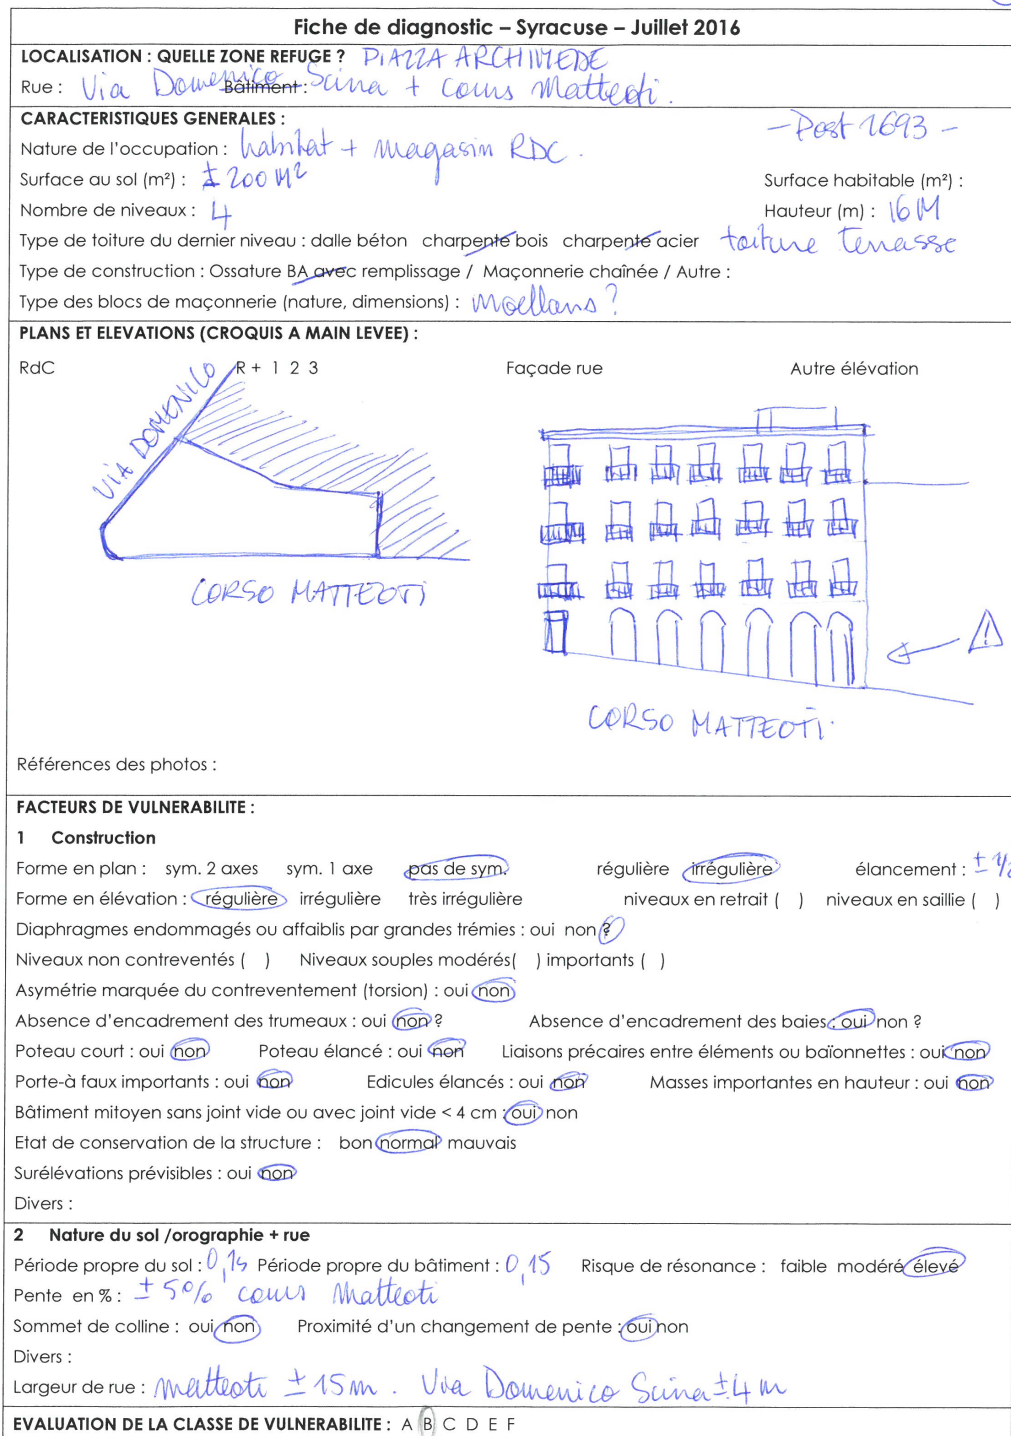 Fiche de diagnostic – Syracuse – Juillet 2016
LOCALISATION : QUELLE ZONE REFUGE ? PIAZZA ARCHIMEDE
Rue : Via Domenico Bâtiment : Scina + cours Matteoti.
CARACTERISTIQUES GENERALES :
- Post 1693 -
Nature de l'occupation : habitat + magasin RDC.
Surface au sol (m²) : ± 200 M² Surface habitable (m²) :
Nombre de niveaux : 4 Hauteur (m) : 16 M
Type de toiture du dernier niveau : dalle béton charpente bois charpente acier toiture terrasse
Type de construction : Ossature BA avec remplissage / Maçonnerie chaînée / Autre :
Type des blocs de maçonnerie (nature, dimensions) : Moellons ?
PLANS ET ELEVATIONS (CROQUIS A MAIN LEVEE) :
RdC R + 1 2 3 Façade rue Autre élévation
VIA DOMENICO
CORSO MATTEOTI
CORSO MATTEOTI.
Références des photos :
FACTEURS DE VULNERABILITE :
1 Construction
Forme en plan : sym. 2 axes sym. 1 axe pas de sym. régulière irrégulière élancement : ±
Forme en élévation : régulière irrégulière très irrégulière niveaux en retrait ( ) niveaux en saillie ( )
Diaphragmes endommagés ou affaiblis par grandes trémies : oui non ?
Niveaux non contreventés ( ) Niveaux souples modérés( ) importants ( )
Asymétrie marquée du contreventement (torsion) : oui non
Absence d'encadrement des trumeaux : oui non ? Absence d'encadrement des baies : oui non ?
Poteau court : oui non Poteau élancé : oui non Liaisons précaires entre éléments ou baïonnettes : oui non
Porte-à faux importants : oui non Edicules élancés : oui non Masses importantes en hauteur : oui non
Bâtiment mitoyen sans joint vide ou avec joint vide < 4 cm : oui non
Etat de conservation de la structure : bon normal mauvais
Surélévations prévisibles : oui non
Divers :
2 Nature du sol /orographie + rue
Période propre du sol : Période propre du bâtiment : 0,15 Risque de résonance : faible modéré élevé
Pente en % : ± 5% cours Matteoti
Sommet de colline : oui non Proximité d'un changement de pente : oui non
Divers :
Largeur de rue : Matteoti ± 15 m . Via Domenico Scina ± 4 m
EVALUATION DE LA CLASSE DE VULNERABILITE : A B C D E F